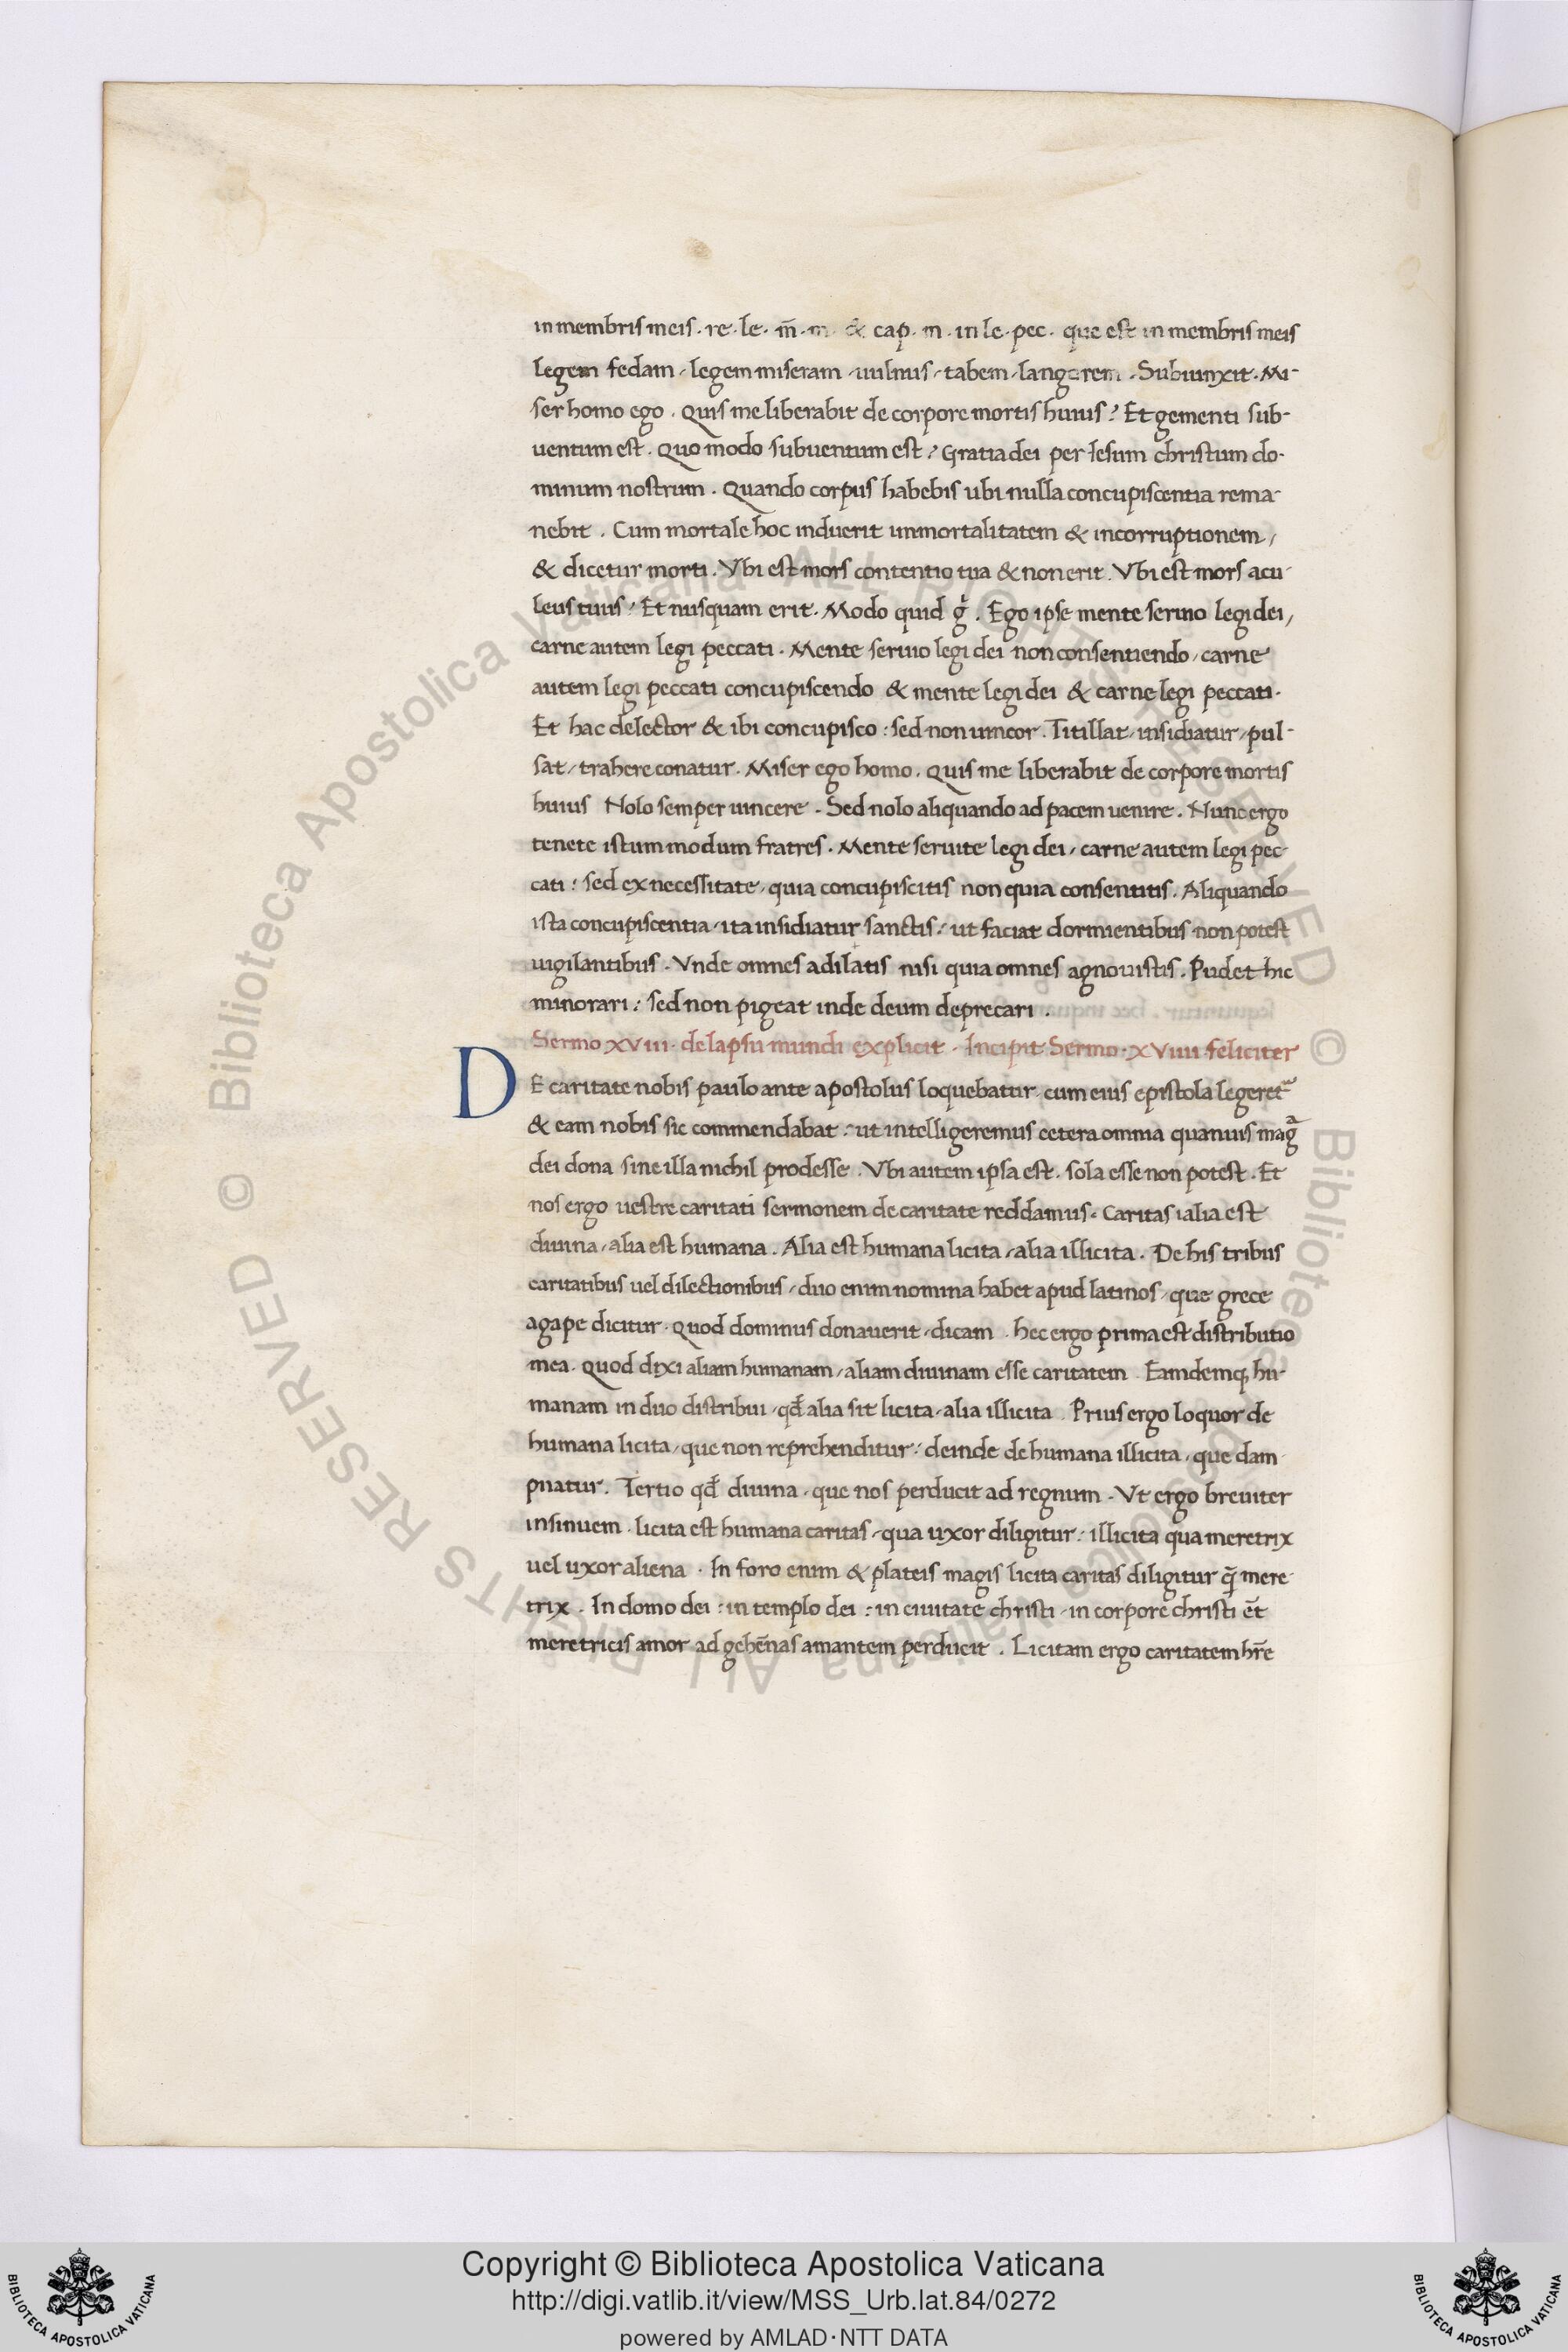 in membris meis · re · le · m̄ · m · & cap · m · in le · pec · que est in membris meis
legem fedam, legem miseram, uulnus, tabem, langorem . Subiunxit . Mi-
ser homo ego . Quis me liberabit de corpore mortis huius? Et gementi sub-
uentum est . Quo modo subuentum est? Gratia dei per Iesum christum do-
minum nostrum . Quando corpus habebis ubi nulla concupiscentia rema-
nebit . Cum mortale hoc induerit immortalitatem & incorruptionem,
& dicetur morti . Vbi est mors contentio tua & non erit . Vbi est mors acu-
leus tuus? Et nusquam erit . Modo quid gͥ . Ego ipse mente seruio legi dei,
carne autem legi peccati . Mente seruio legi dei non consentiendo, carne
autem legi peccati concupiscendo & mente legi dei & carne legi peccati .
Et hac delector & ibi concupisco : sed non uincor . Titillat, insidiatur, pul-
sat, trahere conatur . Miser ego homo . Quis me liberabit de corpore mortis
huius Nolo semper uincere . Sed nolo aliquando ad pacem uenire . Nunc ergo
tenete istum modum fratres . Mente seruite legi dei, carne autem legi pec-
cati : sed ex necessitate, quia concupiscitis non quia consentitis . Aliquando
ista concupiscentia, ita insidiatur sanctis : ut faciat dormientibus non potest
uigilantibus . Vnde omnes adilatis nisi quia omnes agnouistis . Pudet hic
minorari : sed non pigeat inde deum deprecari .
Sermo XVIII · de lapsu mundi explicit · Incipit Sermo · XVIIII feliciter
DE caritate nobis paulo ante apostolus loquebatur, cum eius epistola legeret᷑
& eam nobis sic commendabat : ut intelligeremus cetera omnia quamuis magᷓ
dei dona sine illa nichil prodesse . Vbi autem ipsa est . sola esse non potest . Et
nos ergo uestre caritati sermonem de caritate reddamus . Caritas ialia est
diuina, alia est humana . Alia est humana licita, alia illicita . De his tribus
caritatibus uel dilectionibus, duo enim nomina habet apud latinos, que grece
agape dicitur . Quod dominus donauerit, dicam . hec ergo prima est distributio
mea . Quod dixi aliam humanam, aliam diuinam esse caritatem . Eamdemq; hu-
manam in duo distribui, qđ alia sit licita, alia illicita . Prius ergo loquor de
humana licita, que non reprehenditur : deinde de humana illicita, que dam-
pnatur . Tertio qđ diuina, que nos perducit ad regnum . Vt ergo breuiter
insinuem . licita est humana caritas, qua uxor diligitur : illicita qua meretrix
uel uxor aliena . In foro enim & plateis magis licita caritas diligitur q̄ mere-
trix . In domo dei : in templo dei : in ciuitate christi, in corpore christi ēt
meretricis amor ad gehēnas amantem perducit . Licitam ergo caritatem hr̄e
Copyright © Biblioteca Apostolica Vaticana
http://digi.vatlib.it/view/MSS_Urb.lat.84/0272
powered by AMLAD·NTT DATA
BIBLIOTECA APOSTOLICA VATICANA
BIBLIOTECA APOSTOLICA VATICANA
© Biblioteca Apostolica Vaticana ALL RIGHTS RESERVED
© Biblioteca Apostolica Vaticana ALL RIGHTS RESERVED